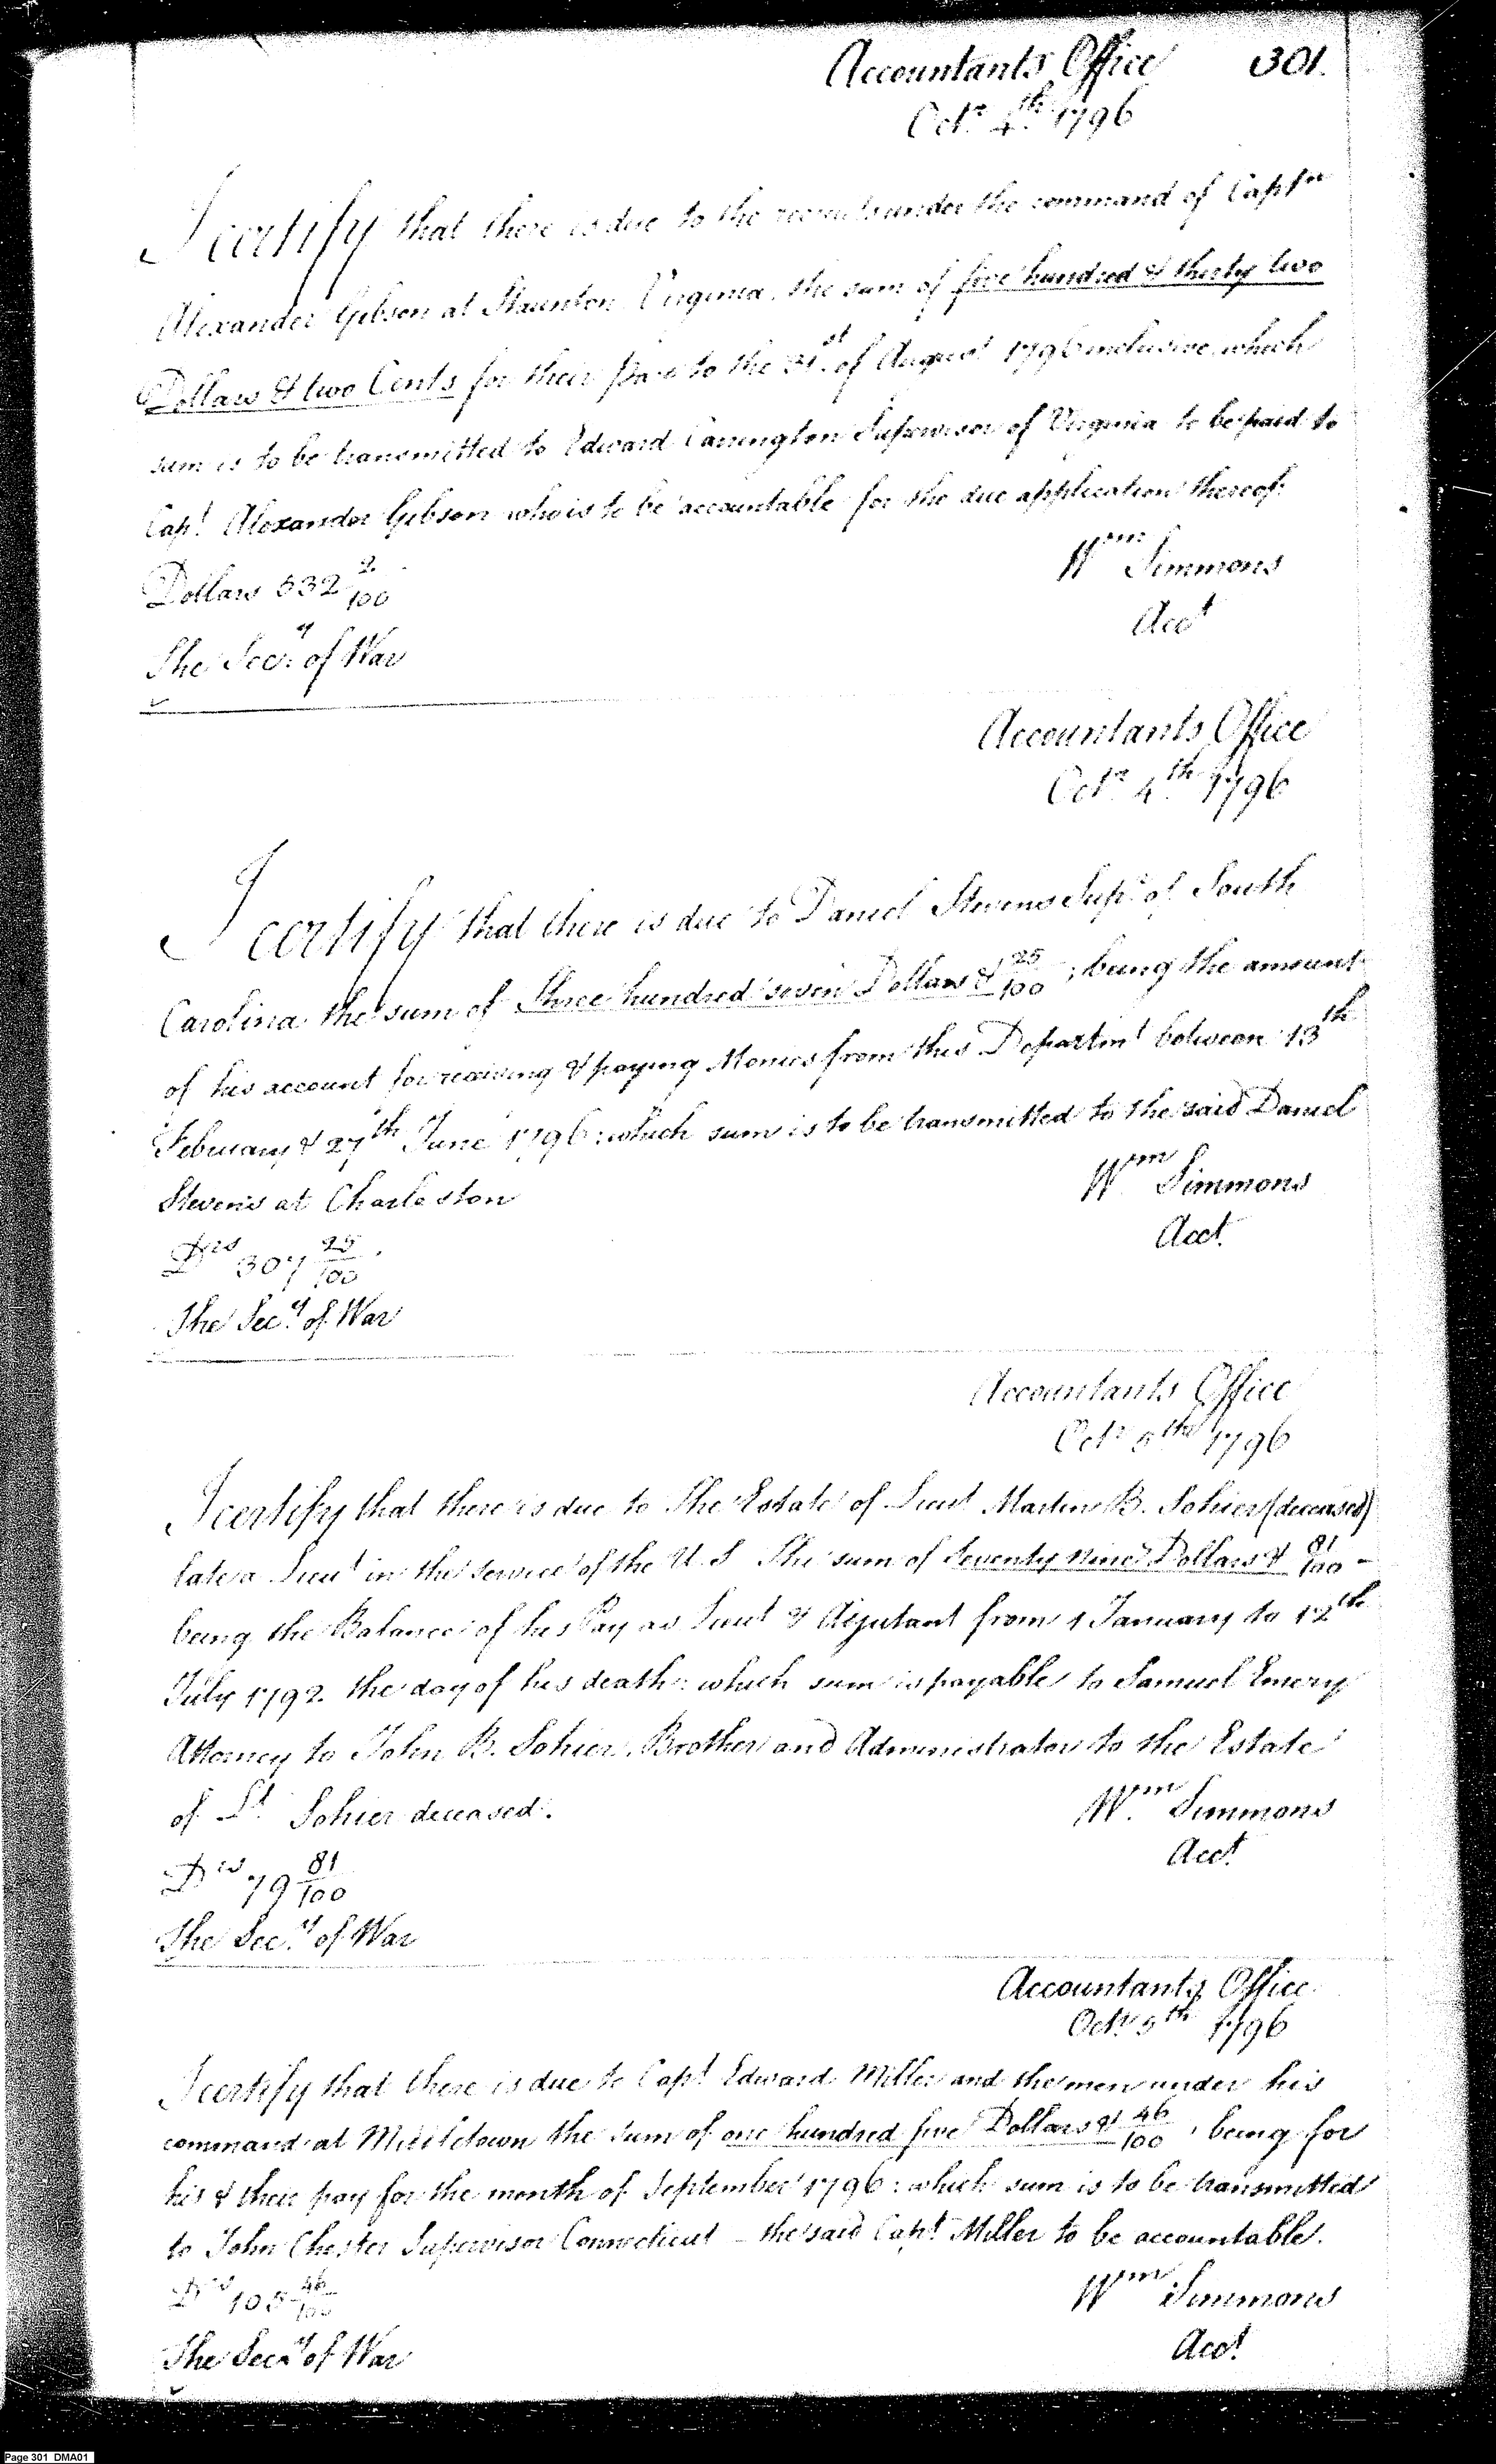 Accountants Office 301.
Octr. 4th. 1796
I certify that there is due to the recruits under the command of Captn
Alexander Gibson at Staunton Virginia, the sum of five hundred & thirty two
Dollars & two Cents for their pay to the 31st of August 1796 inclusive, which
sum is to be transmitted to Edward Carrington Supervisor of Virginia to be paid to
Capt. Alexander Gibson who is to be accountable for the due application thereof.
Wm Simmons
Dollars 532 2/100
Acct
The Secy. of War
Accountants Office
Octr. 4th 1796
I certify that there is due to Daniel Stevens Supr. of South
Carolina the sum of Three hundred seven Dollars & 25/100; being the amount
of his account for receiving & paying Monies from this Departmt between 13th
February & 27th June 1796: which sum is to be transmitted to the said Daniel
Stevens at Charleston
Wm Simmons
Acct.
Drs 307 25/100
The Secy. of War
Accountants Office
Octr 5th 1796
I certify that there is due to The Estate of Lieut Martin B. Sohier (deceased)
late a Lieut in the service of the U.S. The sum of Seventy nine Dollars & 81/100 -
being the Balance of his Pay as Lieut & Adjutant from 1 January to 12th
July 1792. the day of his death: which sum is payable to Samuel Emery
Attorney to John B. Sohier, Brother and Administrator to the Estate
of Lt. Sohier deceased.
Wm. Simmons
Acct.
Drs 79 81/100
The Secy. of War
Accountants Office
Octr 5th 1796
I certify that there is due to Capt Edward Miller and the men under his
command at Middletown the sum of one hundred five Dollars & 46/100, being for
his & their pay for the month of September 1796: which sum is to be transmitted
to John Chester Supervisor Connecticut - the said Capt. Miller to be accountable.
Wm Simmons
Drs 105 46/100
Acct.
The Secy. of War
Page 301 DMA01